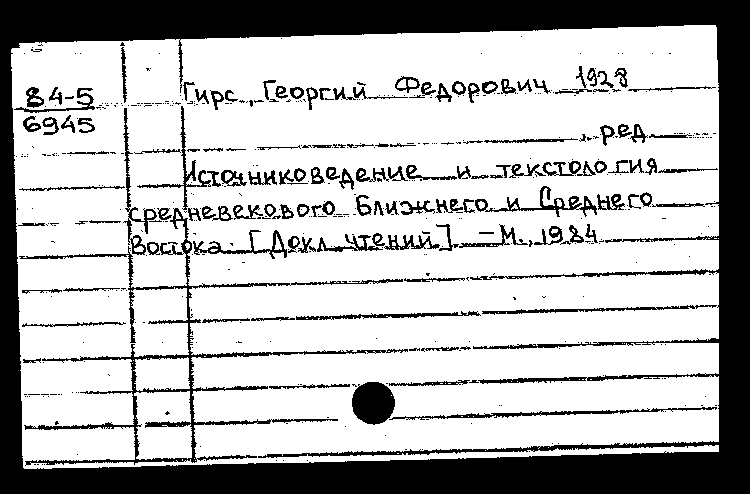 84-5
6945
Гирс, Георгий Федорович 1928
, ред.
Источниковедение и текстология
средневекового Ближнего и Среднего
Востока. [Докл. чтений] – М., 1984